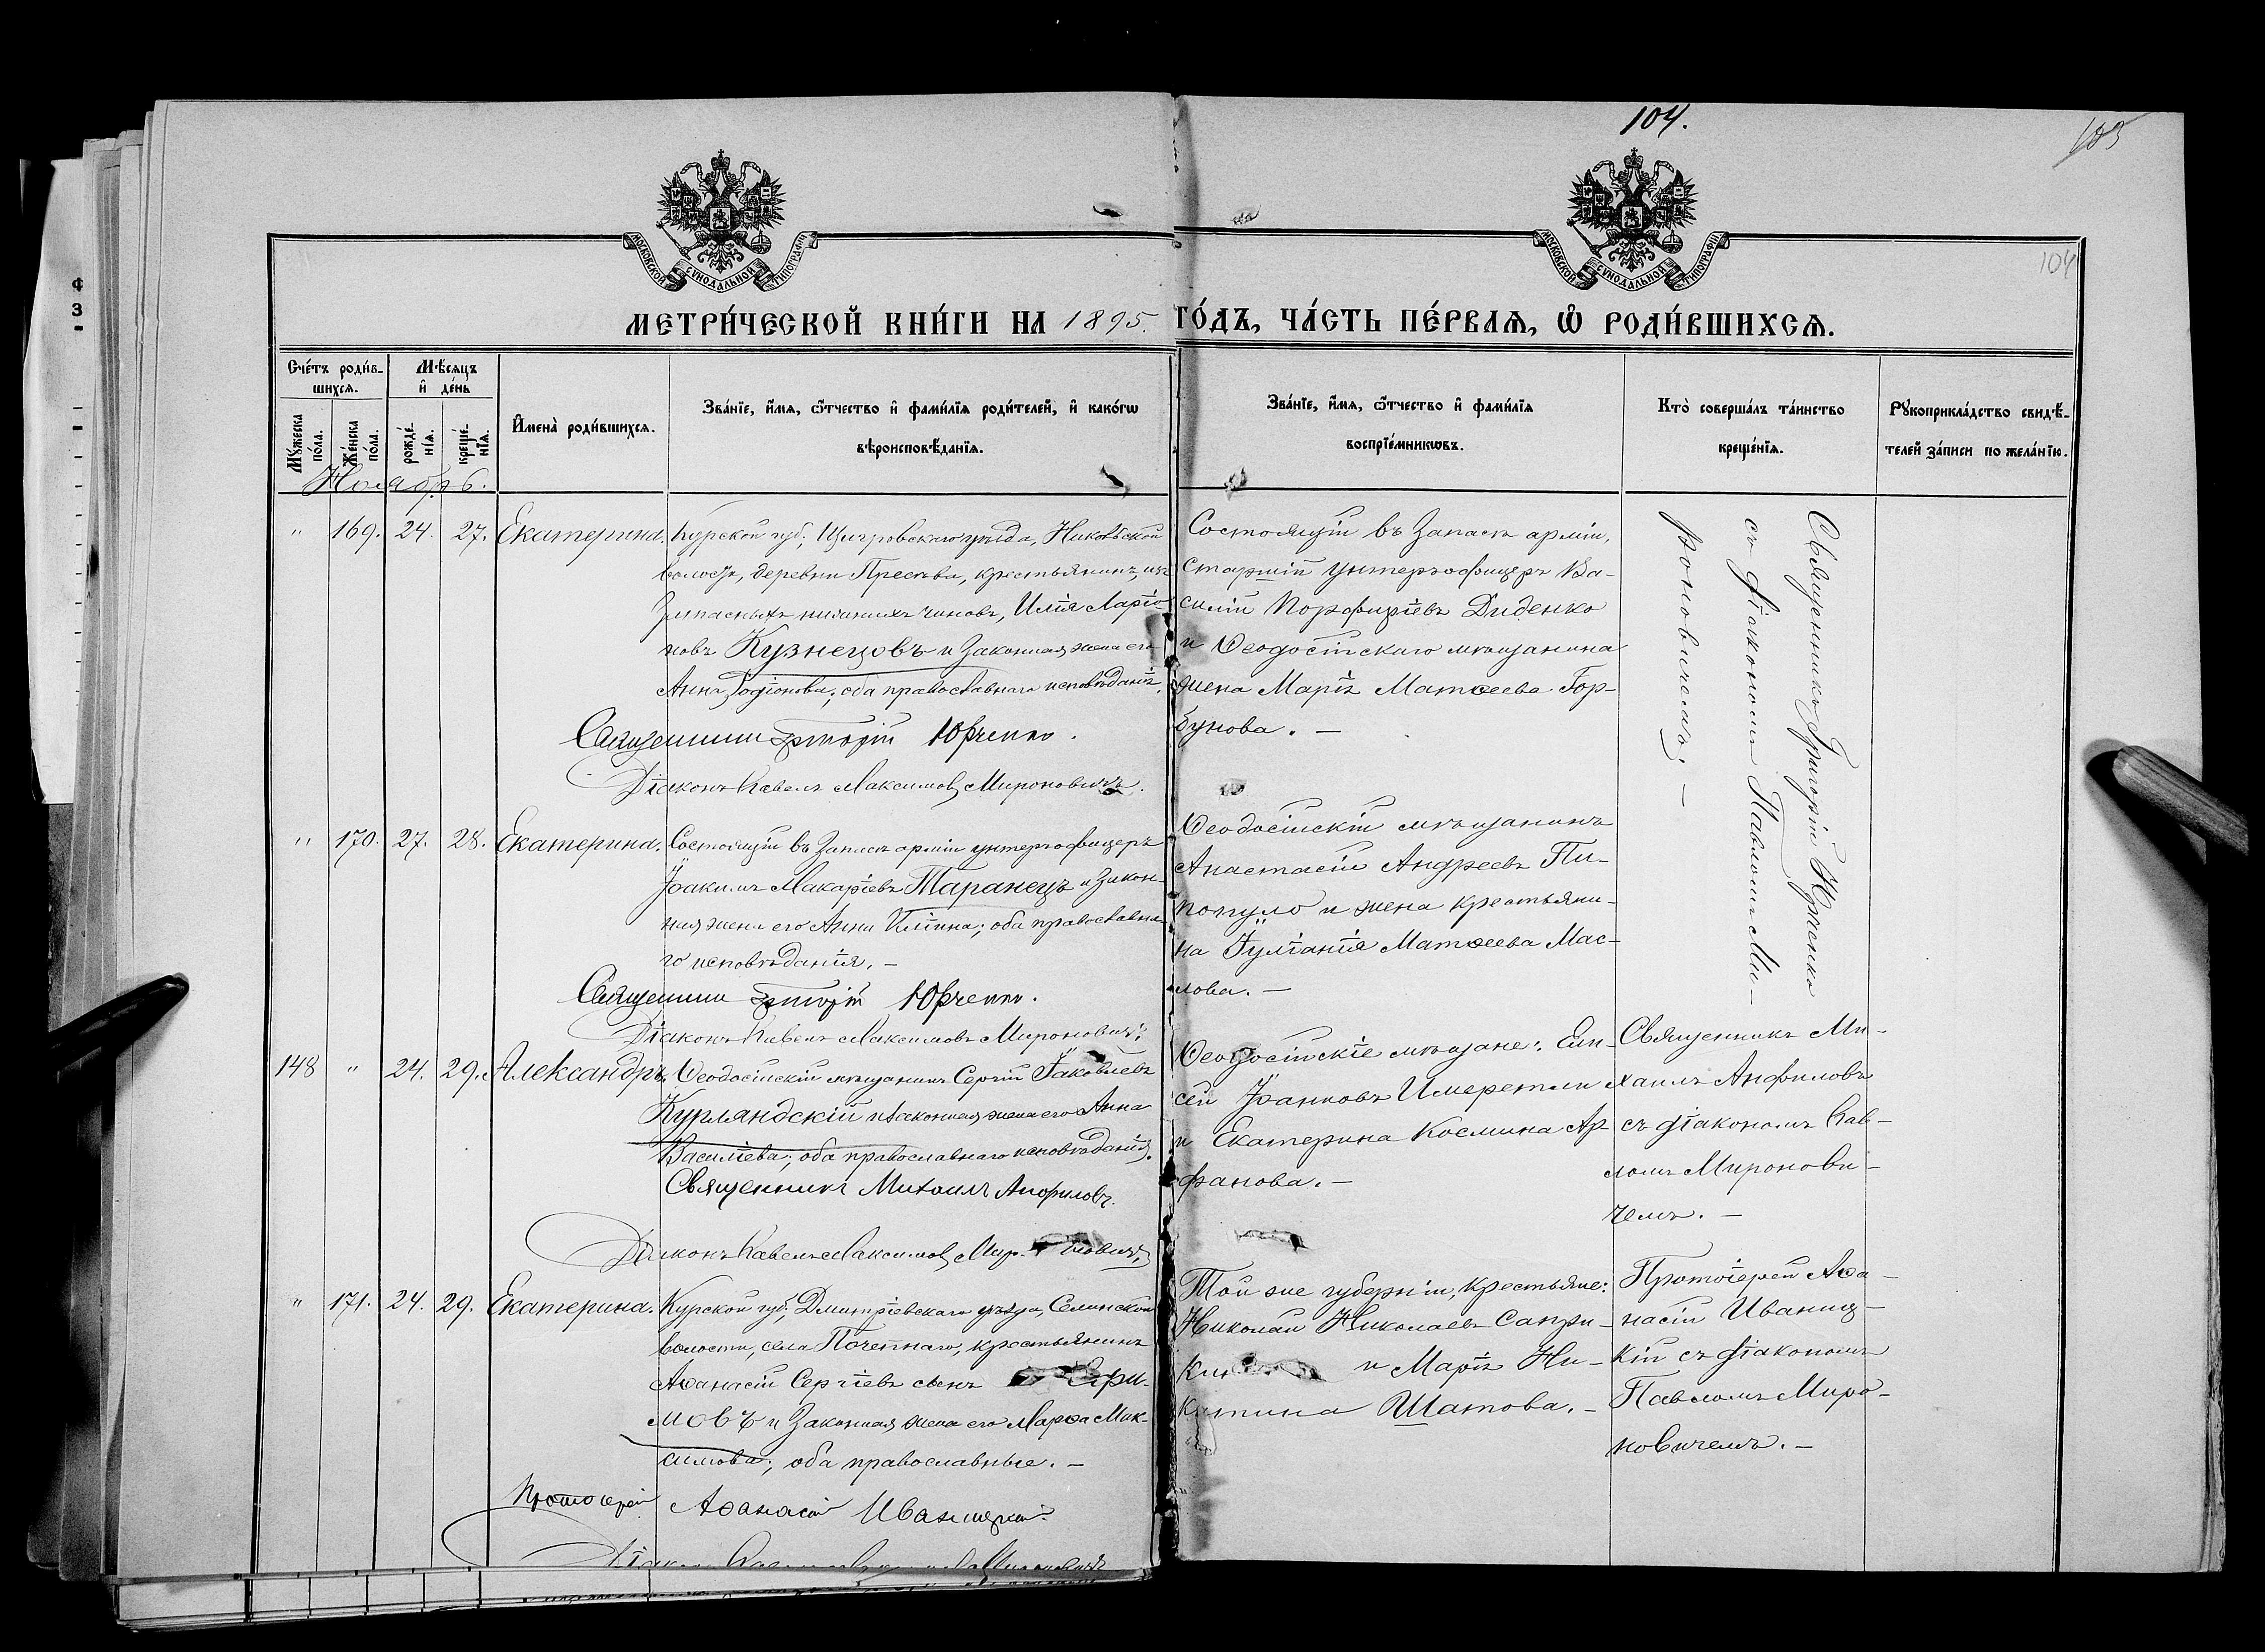 104.
103
104
МОСКОВСКОЙ СѴНОДАЛЬНОЙ ТИПОГРАФІИ
МОСКОВСКОЙ СѴНОДАЛЬНОЙ ТИПОГРАФІИ
МЕТРИ́ЧЕСКОЙ КНИ́ГИ НА 1895. ГО́ДЪ, ЧА́СТЬ ПЕ́РВАѦ, Ѡ҆ РОДИ́ВШИХСѦ.
Сче́тъ роди́в-
шихсѧ.
Мѣ́сѧцъ
и҆ де́нь
Мꙋ́жеска
по́ла.
Же́нска
по́ла.
рожде́-
нїѧ.
креще́-
нїѧ.
И҆мена̀ роди́вшихсѧ.
Зва́нїе, и҆́мѧ, ѻ҆́тчество и҆ фами́лїѧ роди́телей, и҆ како́гѡ
вѣроисповѣ́данїѧ.
Зва́нїе, и҆́мѧ, ѻ҆́тчество и҆ фами́лїѧ
воспрїе́мникѡвъ.
Кто̀ соверша́лъ та́инство
креще́нїѧ.
Рꙋкоприкла́дство свидѣ́-
телей за́писи по жела́нїю.
Ноябрь.
" 169. 24. 27. Екатерина.
Курской губ., Щигровскаго уѣзда, Никольской
волости, деревни, крестьянинъ, изъ
запасныхъ нижнихъ чиновъ, Илія Ларіо
новъ Кузнецовъ и законная жена его
Анна Родіонова; оба православнаго исповѣданія.
Священникъ Григорій Юрченко.
Діаконъ Павелъ Максимовъ Мироновичъ.
Состоящій въ запасѣ арміи,
старшій унтеръ-офицеръ Ва-
силій Порфиріевъ Диденко
и Ѳеодосійскаго мѣщанина
жена Марія Матѳеева Гор-
бунова. —
Священникъ Григорій Юрченко
съ діакономъ Павломъ Ми-
роновичемъ. —
" 170. 27. 28. Екатерина.
Состоящій въ запасѣ арміи унтеръ-офицеръ
Іоакимъ Макаріевъ Таранецъ и закон-
ная жена его Анна Иліина; оба православна-
го исповѣданія. —
Священникъ Григорій Юрченко.
Діаконъ Павелъ Максимовъ Мироновичъ.
Ѳеодосійскій мѣщанинъ
Анастасій Андреевъ Пи-
популо и жена крестьяни-
на Іуліанія Матѳеева Мас-
лова. —
148 " 24. 29. Александръ.
Ѳеодосійскій мѣщанинъ Сергій Іаковлевъ
Курляндскій и законная жена его Анна
Василіева; оба православнаго исповѣданія.
Священникъ Михаилъ Анфиловъ.
Діаконъ Павелъ Максимовъ Мироновичъ.
Ѳеодосійскіе мѣщане: Ели-
сей Іоанновъ Имеретли
и Екатерина Космина Ар-
фанова. —
Священникъ Ми-
хаилъ Анфиловъ
съ діакономъ Пав-
ломъ Миронови-
чемъ. —
" 171. 24. 29. Екатерина.
Курской губ., Дмитріевскаго уѣзда, Селинской
волости, села Почепнаго, крестьянинъ
Аѳанасій Сергіевъ сынъ
мовъ и законная жена его Марѳа Мак-
симова; оба православные. —
Протоіерей Аѳанасій Иваницкій.
Діаконъ Павелъ Мироновичъ
Той же губерніи, крестьяне:
Николай Николаевъ Сапры-
кинъ и Марія Ни-
китина Шатова. —
Протоіерей Аѳа-
насій Иваниц-
кій съ діакономъ
Павломъ Миро-
новичемъ. —